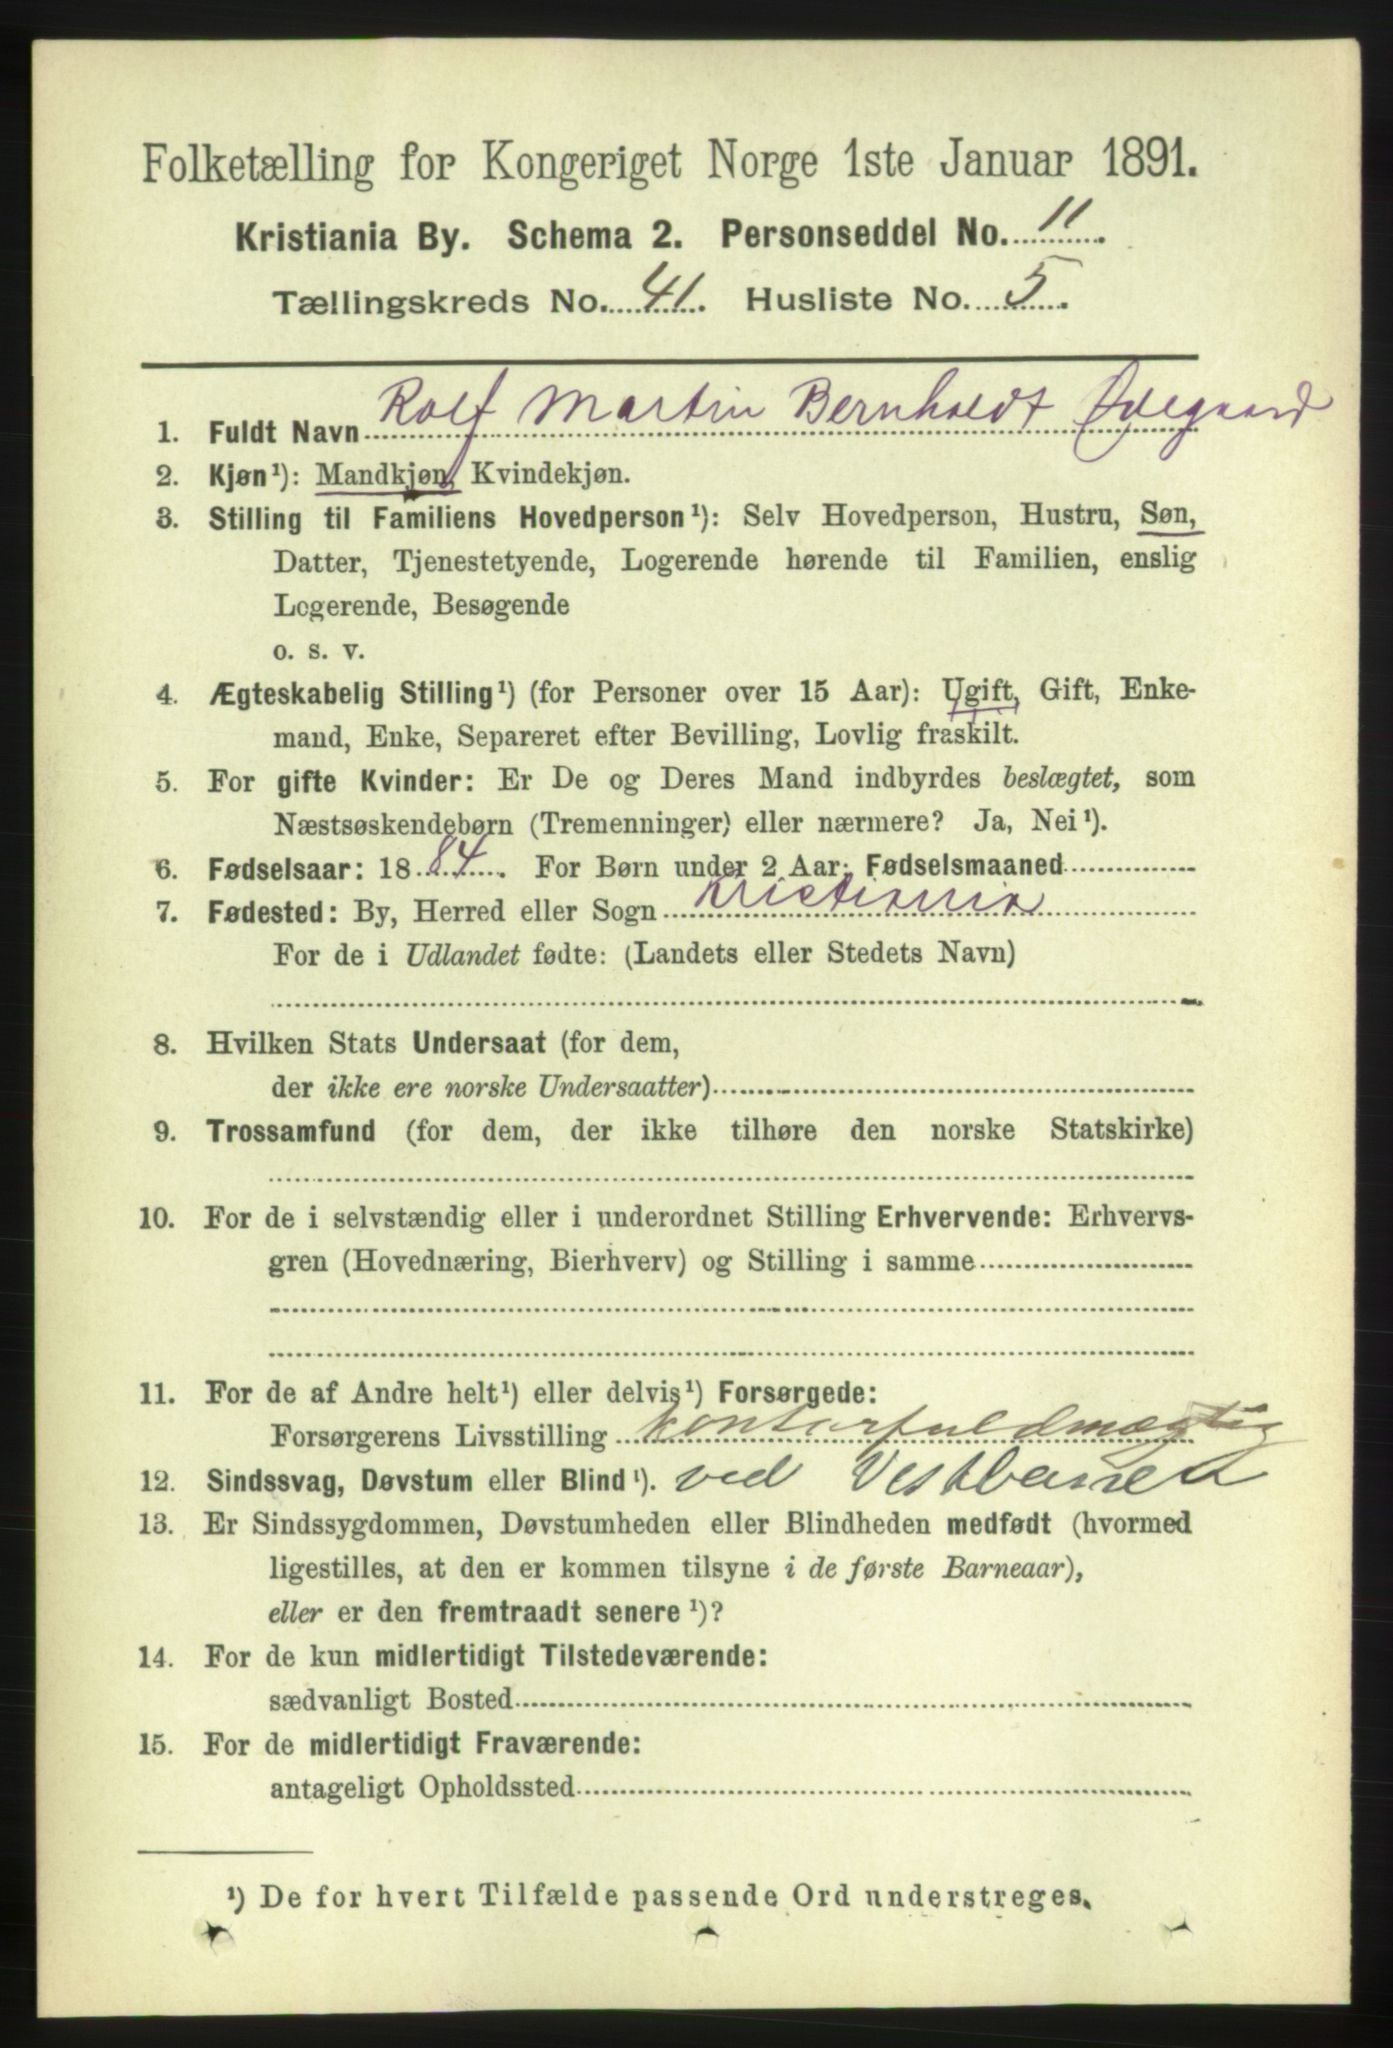 Folketælling for Kongeriget Norge 1ste Januar 1891.
Kristiania By. Schema 2. Personseddel No. 11.
Tællingskreds No. 41. Husliste No. 5.
1. Fuldt Navn Rolf Martin Bernholdt Ødegaard
2. Kjøn¹): Mandkjøn, Kvindekjøn.
3. Stilling til Familiens Hovedperson¹): Selv Hovedperson, Hustru, Søn,
Datter, Tjenestetyende, Logerende hørende til Familien, enslig
Logerende, Besøgende
o. s. v.
4. Ægteskabelig Stilling¹) (for Personer over 15 Aar): Ugift, Gift, Enke-
mand, Enke, Separeret efter Bevilling, Lovlig fraskilt.
5. For gifte Kvinder: Er De og Deres Mand indbyrdes beslægtet, som
Næstsøskendebørn (Tremenninger) eller nærmere? Ja, Nei¹).
6. Fødselsaar: 1884. For Børn under 2 Aar: Fødselsmaaned
7. Fødested: By, Herred eller Sogn Kristiania
For de i Udlandet fødte: (Landets eller Stedets Navn)
8. Hvilken Stats Undersaat (for dem,
der ikke ere norske Undersaatter)
9. Trossamfund (for dem, der ikke tilhøre den norske Statskirke)
10. For de i selvstændig eller i underordnet Stilling Erhvervende: Erhvervs-
gren (Hovednæring, Bierhverv) og Stilling i samme
11. For de af Andre helt¹) eller delvis¹) Forsørgede:
Forsørgerens Livsstilling Kontorfuldmægtig
12. Sindssvag, Døvstum eller Blind¹). ved Vestbanen
13. Er Sindssygdommen, Døvstumheden eller Blindheden medfødt (hvormed
ligestilles, at den er kommen tilsyne i de første Barneaar),
eller er den fremtraadt senere¹)?
14. For de kun midlertidigt Tilstedeværende:
sædvanligt Bosted
15. For de midlertidigt Fraværende:
antageligt Opholdssted
¹) De for hvert Tilfælde passende Ord understreges.